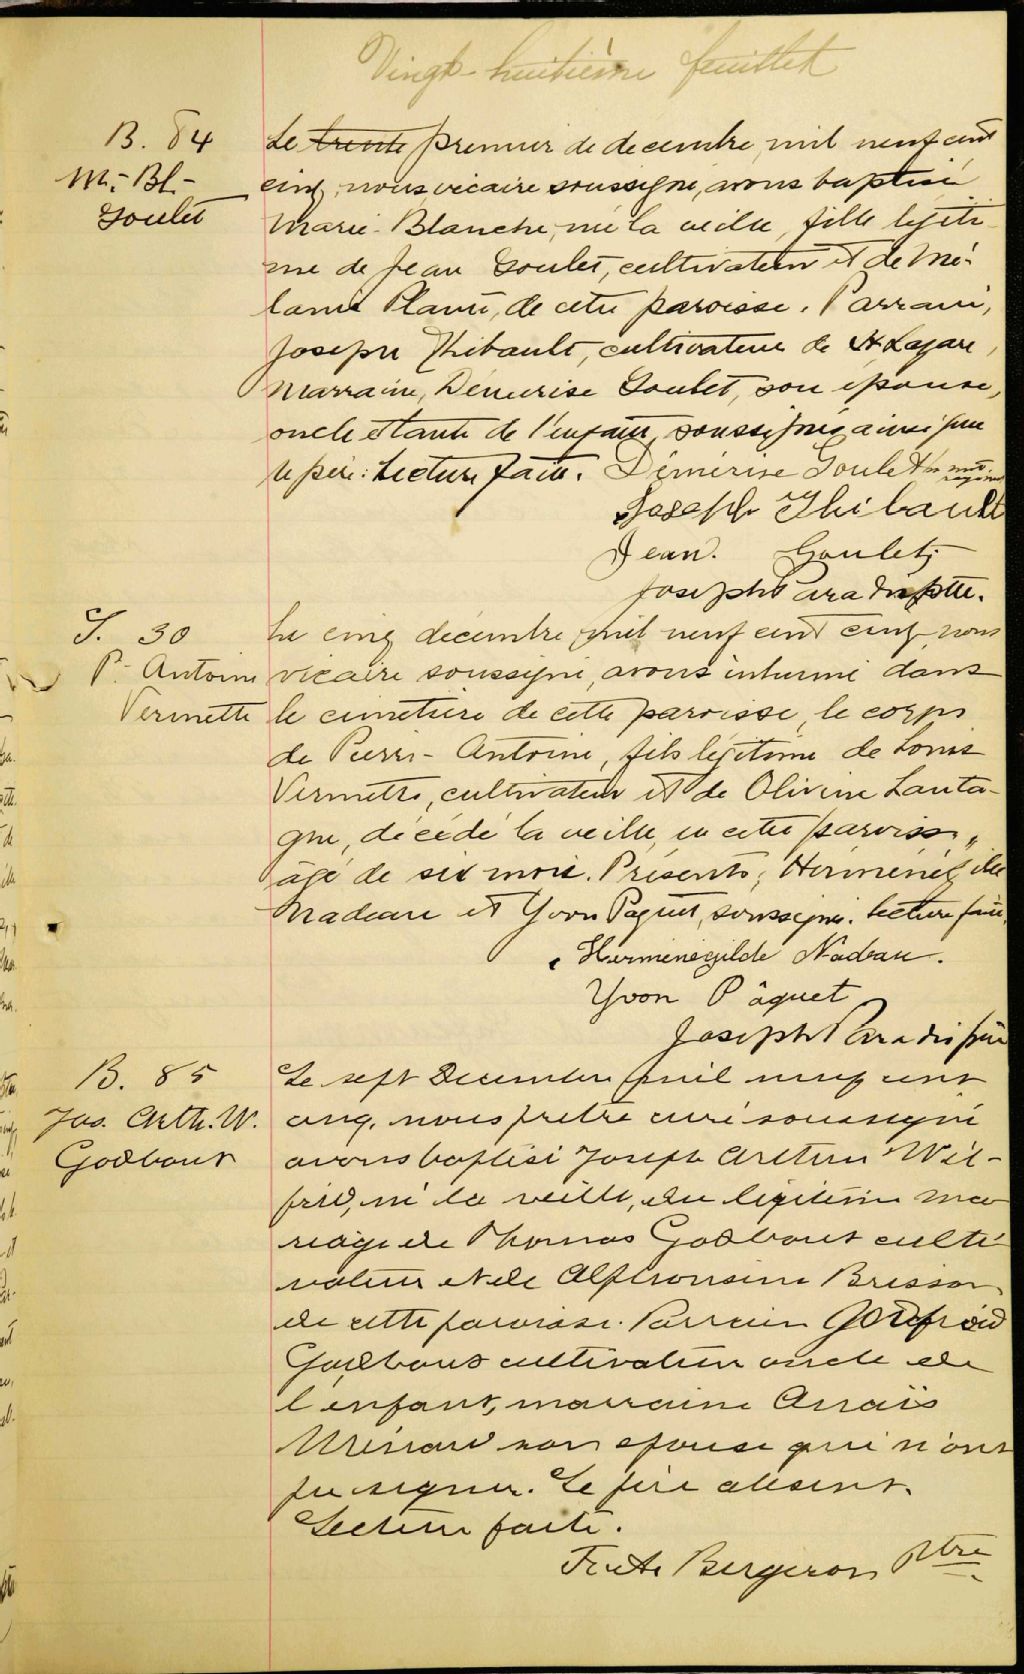 Vingt-huitième feuillet
B. 84
M.-Bl.-
Goulet
Le trente premier de decembre, mil neuf cent
cinq, nous vicaire soussigné, avons baptisé
Marie-Blanche, née la veille, fille légiti-
me de Jean Goulet, cultivateur et de Mé-
lanie Plante, de cette paroisse. Parrain,
Joseph Thibault, cultivateur de St Lazare,
Marraine, Démerise Goulet, son épouse,
oncle et tante de l'enfant, soussignés ainsi que
le père: Lecture faite. Démérise Goulet
Joseph Thibault
Jean. Goulet
Joseph Paradis ptre.
S. 30
P. Antoine
Vermette
Le cinq décembre mil neuf cent cinq, nous
vicaire soussigné, avons inhumé dans
le cimetière de cette paroisse, le corps
de Pierre-Antoine, fils légitime de Louis
Vermette, cultivateur et de Olivine Lanta-
gne, décédé la veille, en cette paroisse,
âgé de six mois. Présents, Herménégilde
Nadeau et Yvon Paquet, soussignés. Lecture faite.
Herménégilde Nadeau.
Yvon Pâquet
Joseph Paradis ptre
B. 85
Jos. Arth. W.
Godbout
Le sept Decembre mil neuf cent
cinq, nous prêtre curé soussigné
avons baptisé Joseph Arthur Wil-
frid, né la veille, du légitime ma
riage de Thomas Godbout culti
vateur et de Alphonsine Brisson
de cette paroisse. Parrain Godfroid
Godbout cultivateur oncle de
l'enfant, marraine Anaïs
Ménard son épouse qui n'ont
pu signer. Le père absent.
Lecture faite.
Bergeron Ptre